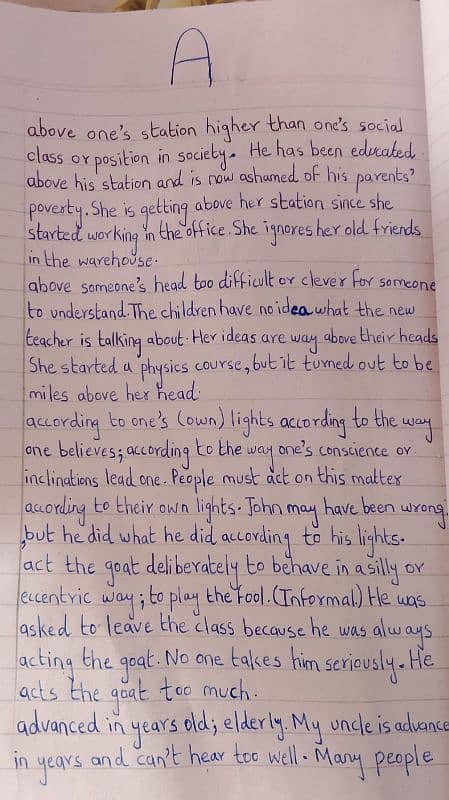 A
above one's station higher than one's social
class or position in society. He has been educated
above his station and is now ashamed of his parents'
poverty. She is getting above her station since she
started working in the office. She ignores her old friends
in the warehouse.
above someone's head too difficult or clever for someone
to understand. The children have no idea what the new
teacher is talking about. Her ideas are way above their heads
She started a physics course, but it turned out to be
miles above her head.
according to one's (own) lights according to the way
one believes; according to the way one's conscience or
inclinations lead one. People must act on this matter
according to their own lights. John may have been wrong,
,but he did what he did according to his lights.
act the goat deliberately to behave in a silly or
eccentric way; to play the fool. (Informal) He was
asked to leave the class because he was always
acting the goat. No one takes him seriously. He
acts the goat too much.
advanced in years old; elderly. My uncle is advance
in years and can't hear too well. Many people